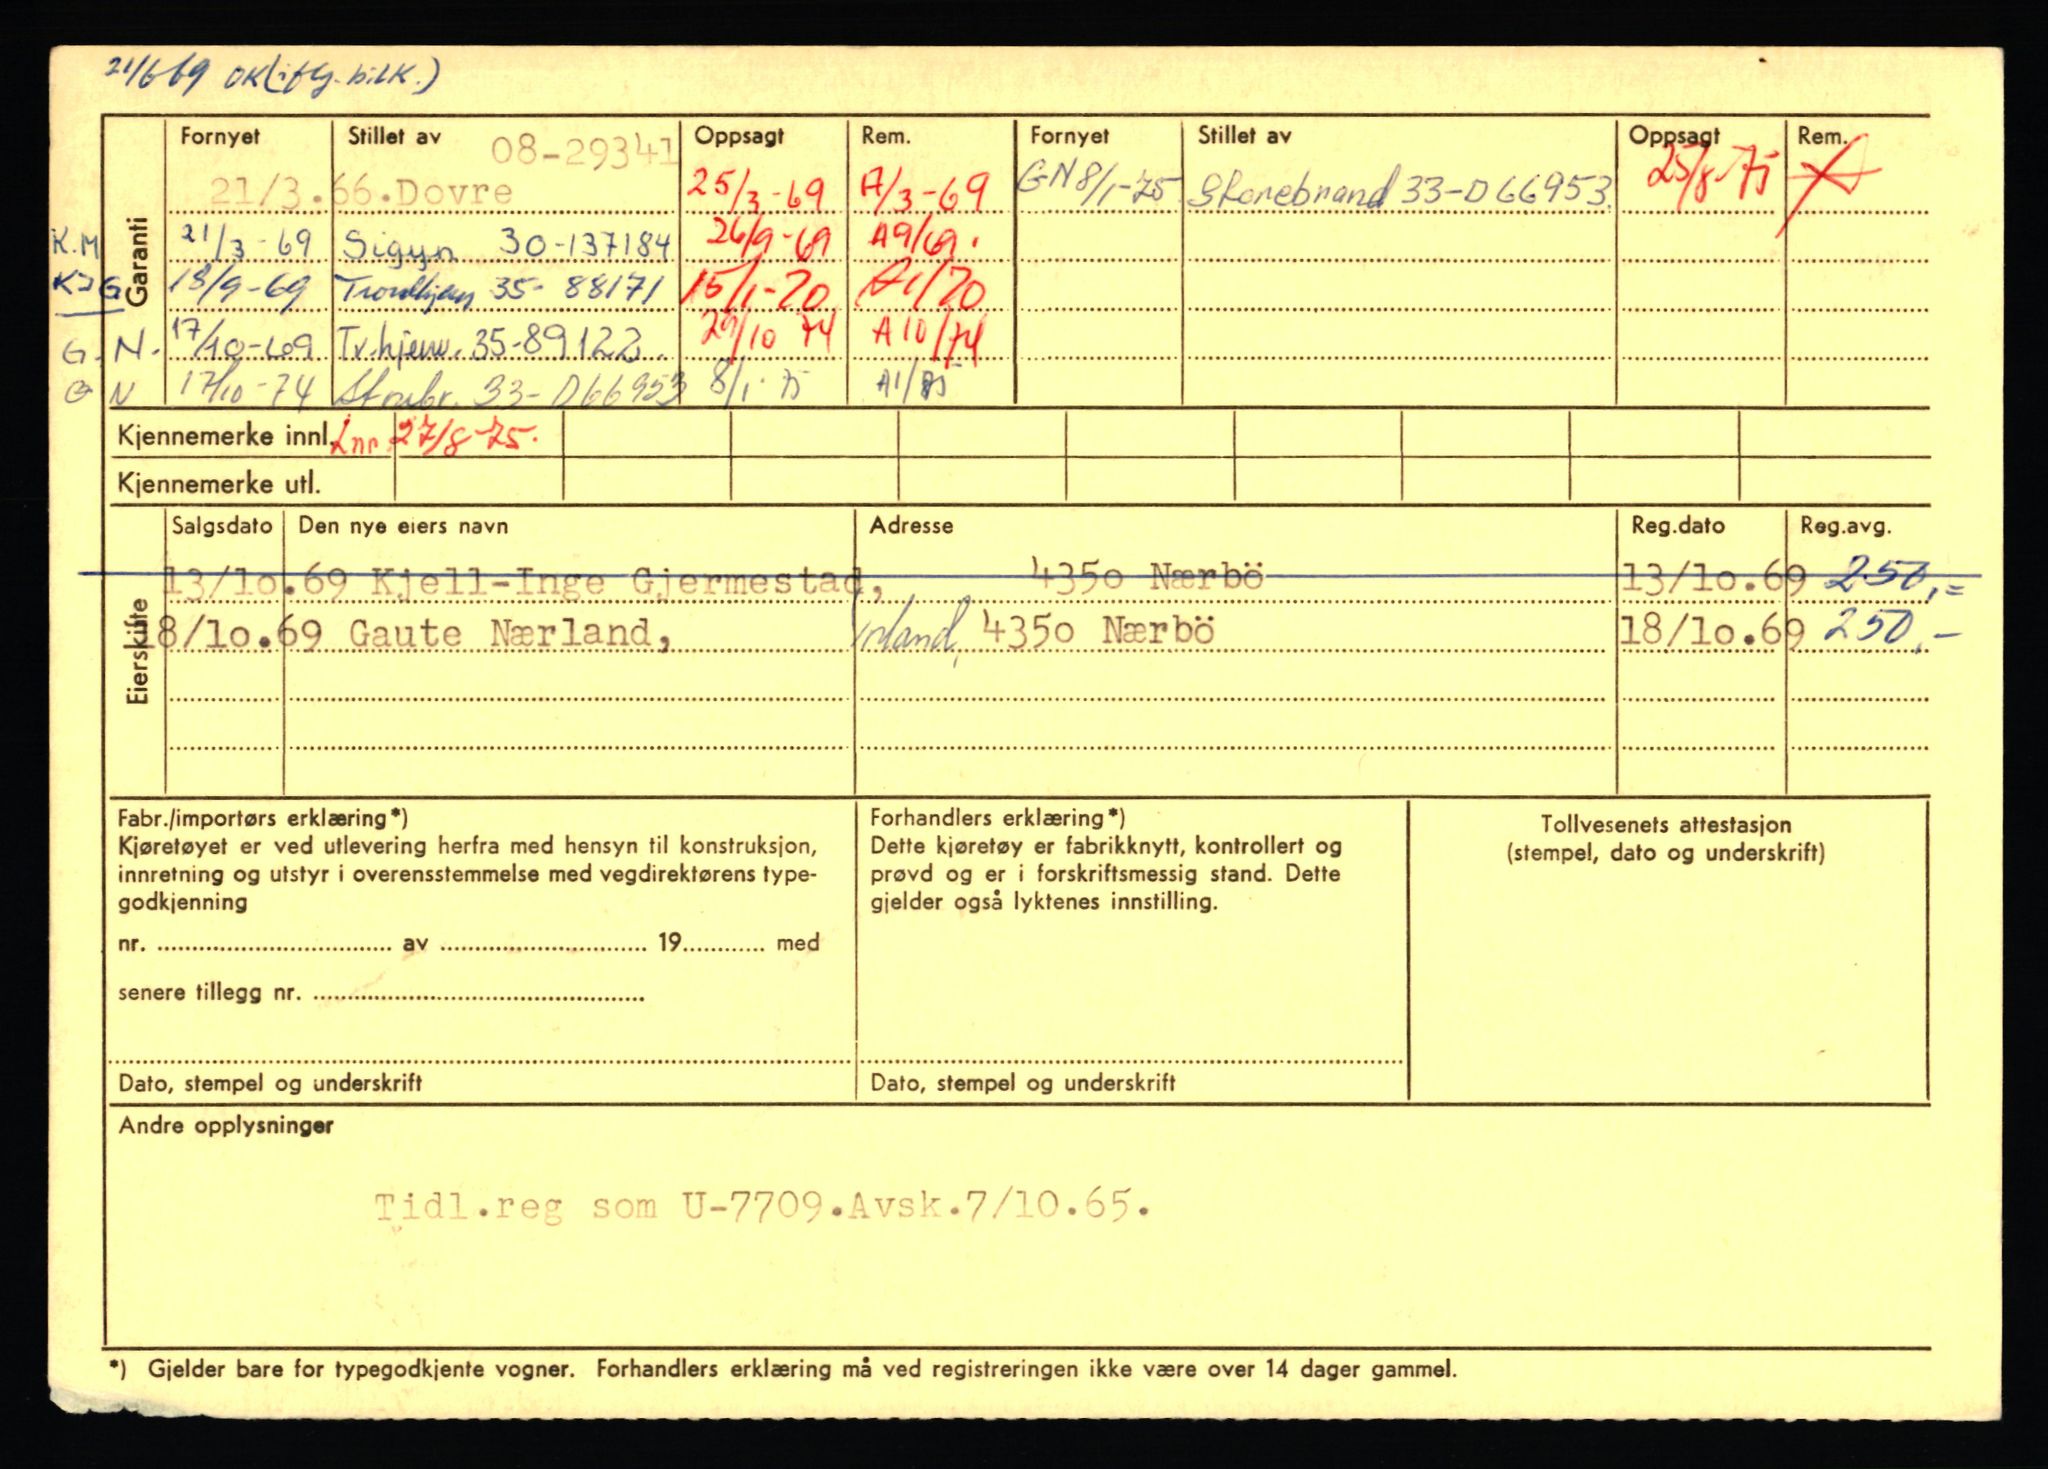 21/6 69 OK (ifg. bilk.)
Garanti
Fornyet Stillet av 08-29341 Oppsagt Rem. Fornyet Stillet av Oppsagt Rem.
21/3.66. Dovre 25/3-69 A/3-69 GN 8/1-75 Storebrand 33-D66953. 25/8-75 A
K.M 21/3-69 Sigyn 30-137184 26/9-69 A9/69.
KJG 18/9-69 Trondhjem 35-88171 15/1-70 A1/70
G.N. 17/10-69 Tr.hjem. 35-89122. 29/10 74 A10/74
G N 17/10-74 Storebr. 33-D66953 8/1-75 A1/75
Kjennemerke innl. Lnr. 27/8-75.
Kjennemerke utl.
Eierskifte
Salgsdato Den nye eiers navn Adresse Reg.dato Reg.avg.
13/1o.69 Kjell-Inge Gjermestad, 435o Nærbö 13/1o.69 250,=
18/1o.69 Gaute Nærland, 435o Nærbö 18/1o.69 250,-
Fabr./importørs erklæring*)
Kjøretøyet er ved utlevering herfra med hensyn til konstruksjon,
innretning og utstyr i overensstemmelse med vegdirektørens type-
godkjenning
nr. .......... av .......... 19.......... med
senere tillegg nr. ..........
Dato, stempel og underskrift
Forhandlers erklæring*)
Dette kjøretøy er fabrikknytt, kontrollert og
prøvd og er i forskriftsmessig stand. Dette
gjelder også lyktenes innstilling.
Dato, stempel og underskrift
Tollvesenets attestasjon
(stempel, dato og underskrift)
Andre opplysninger
Tidl.reg som U-7709.Avsk.7/10.65.
*) Gjelder bare for typegodkjente vogner. Forhandlers erklæring må ved registreringen ikke være over 14 dager gammel.